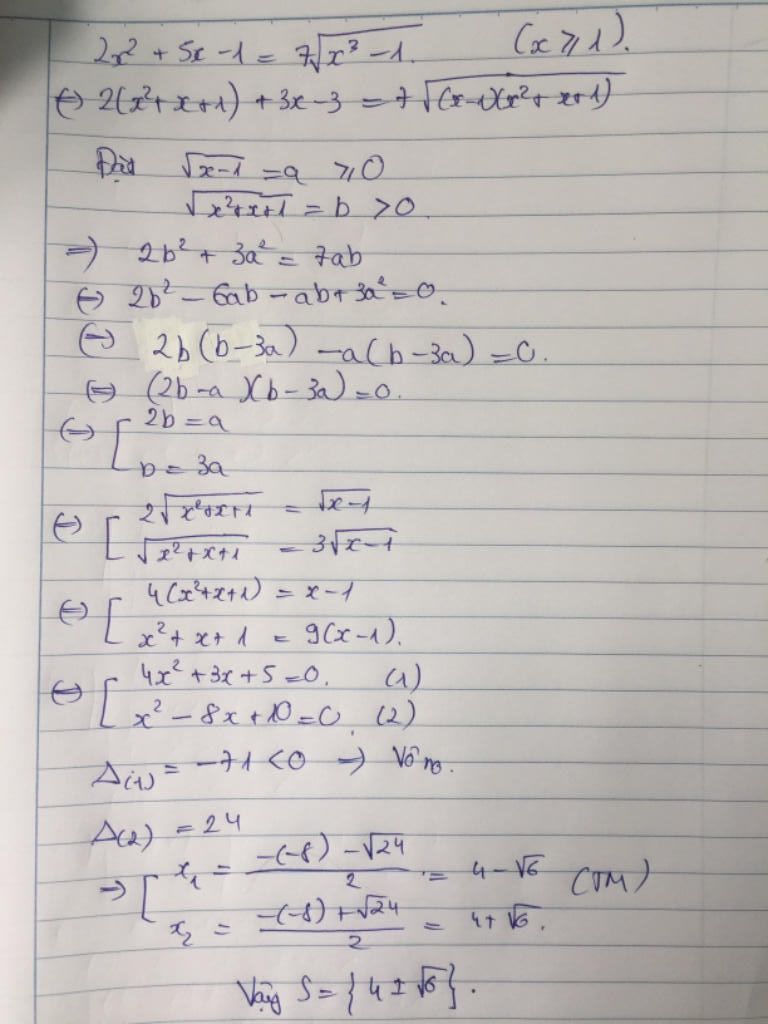 2x² + 5x - 1 = 7√(x³ - 1). (x ⩾ 1).
⇔ 2(x² + x + 1) + 3x - 3 = 7√((x-1)(x² + x + 1))
Đặt √(x-1) = a ⩾ 0
√(x²+x+1) = b > 0.
⇒ 2b² + 3a² = 7ab
⇔ 2b² - 6ab - ab + 3a² = 0.
⇔ 2b(b-3a) - a(b-3a) = 0.
⇔ (2b-a)(b-3a) = 0.
⇔ [ 2b = a
b = 3a
⇔ [ 2√(x²+x+1) = √(x-1)
√(x²+x+1) = 3√(x-1)
⇔ [ 4(x²+x+1) = x-1
x² + x + 1 = 9(x-1).
⇔ [ 4x² + 3x + 5 = 0. (1)
x² - 8x + 10 = 0. (2)
Δ(1) = -71 < 0 ⇒ Vô no.
Δ(2) = 24
⇒ [ x₁ = (-(-8) - √24)/2 = 4 - √6 (TM)
x₂ = (-(-8) + √24)/2 = 4 + √6.
Vậy S = {4 ± √6}.